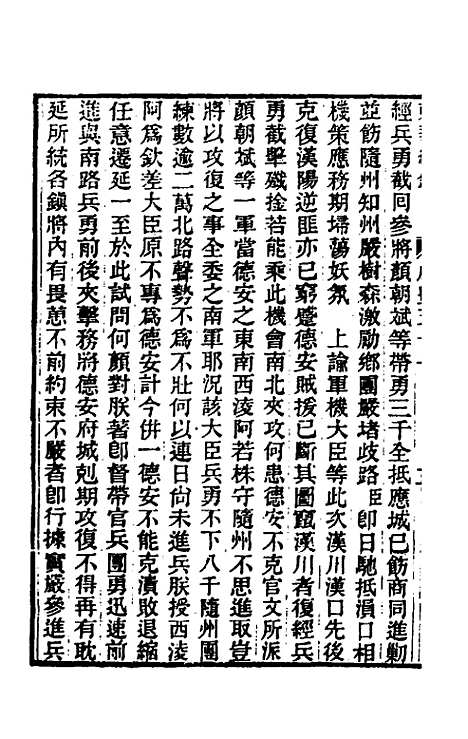 經兵勇截回參將顏朝斌等帶勇三千全抵應城已飭商同進勦
並飭隨州知州嚴樹森激勵鄉團嚴堵歧路臣卽日馳抵溳口相
機策應務期埽蕩妖氛　上諭軍機大臣等此次漢川漢口先後
克復漢陽逆匪亦已窮蹙德安賊援已斷其圖竄漢川者復經兵
勇截擊殲捦若能乘此機會南北夾攻何患德安不克官文所派
顏朝斌等一軍當德安之東南西淩阿若株守隨州不思進取豈
將以攻復之事全委之南軍耶況該大臣兵勇不下八千隨州團
練數逾二萬北路聲勢不爲不壯何以連日尙未進兵朕授西淩
阿爲欽差大臣原不專爲德安計今併一德安不能克潰敗退縮
任意遷延一至於此試問何顏對朕著卽督帶官兵團勇迅速前
進與南路兵勇前後夾擊務將德安府城剋期攻復不得再有耽
延所統各鎭將內有畏葸不前約束不嚴者卽行據實嚴參進兵